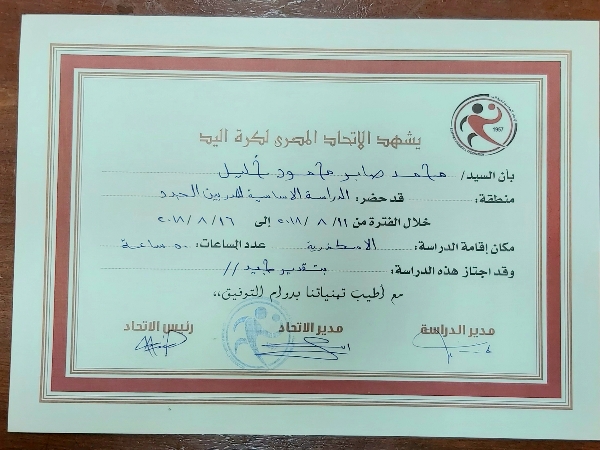 1957
يشهد الاتحاد المصرى لكرة اليد
بأن السيد/ محمد صابر محمود خليل
منطقة: قد حضر: الدراسة الاساسية للمدربين الجدد
خلال الفترة من ١١ / ٨ / ٢٠١٨ إلى ١٦ / ٨ / ٢٠١٨
مكان إقامة الدراسة: الاسكندرية عدد الساعات: ٥٠ ساعة
وقد اجتاز هذه الدراسة: بتقدير جيد //
مع أطيب تهنياتنا بدوام التوفيق،،
مدير الدراسة مدير الاتحاد رئيس الاتحاد